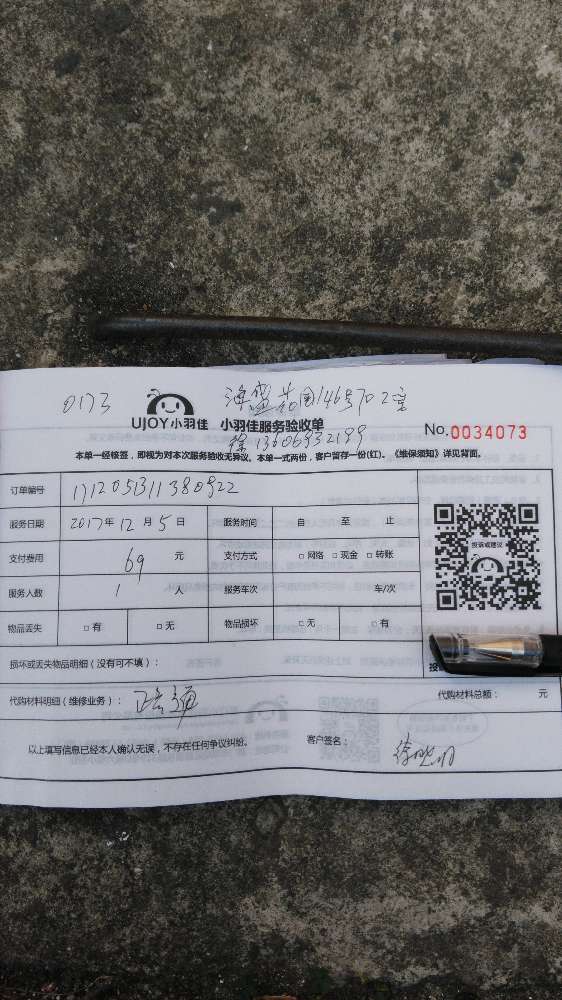 0173
146号702室
UJOY小羽佳 小羽佳服务验收单
No.0034073
徐13606932199
本单一经核签,即视为对本次服务验收无异议。本单一式两份,客户留存一份(红)。《维保须知》详见背面。
订单编号
服务日期 2017年12月5日 服务时间 自 至 止
支付费用 69 元 支付方式 □网络 □现金 □转账
服务人数 1 人 服务车次 车/次
物品丢失 □有 □无 物品损坏 □无 □有
投诉或建议
损坏或丢失物品明细(没有可不填):
代购材料明细(维修业务): 代购材料总额: 元
以上填写信息已经本人确认无误,不存在任何争议纠纷。 客户签名: